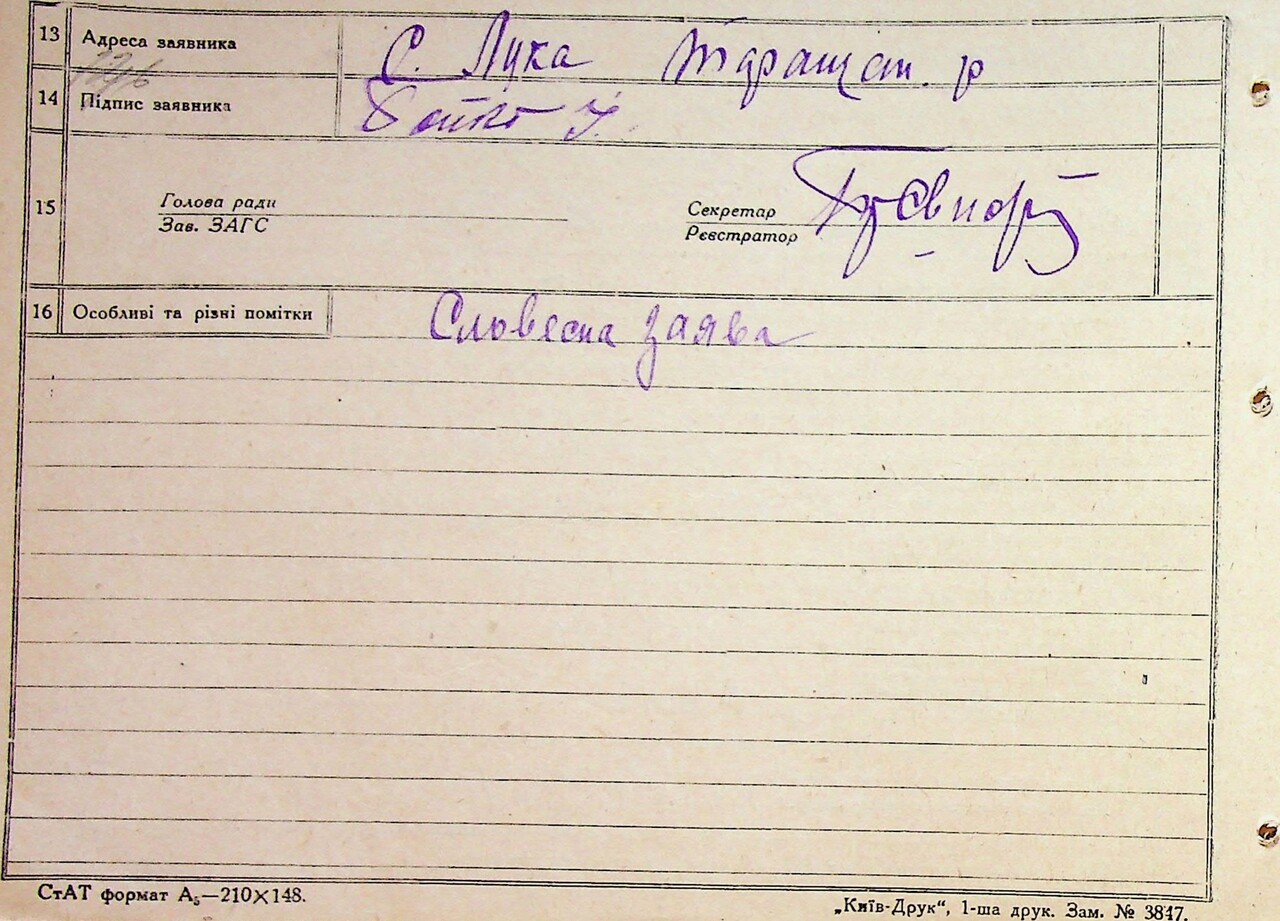 13 Адреса заявника С. Лука Таращан. р
14 Підпис заявника Бойко У.
15 Голова ради Секретар
Зав. ЗАГС Реєстратор
16 Особливі та різні помітки Словесна заява
СтАТ формат А₅—210×148.
„Київ-Друк“, 1-ша друк. Зам. № 3847.